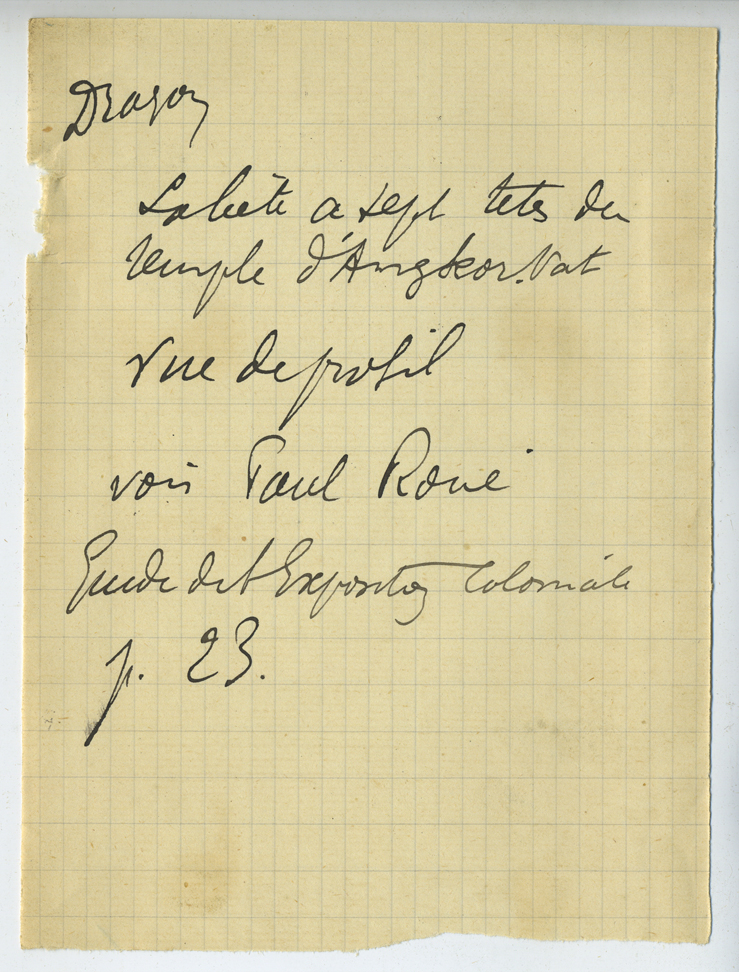 Dragon
La bête a sept têtes du
temple d'Angkor.Vat
vue de profil
voir Paul Roué
Guide de l'Exposition Coloniale
p. 23.